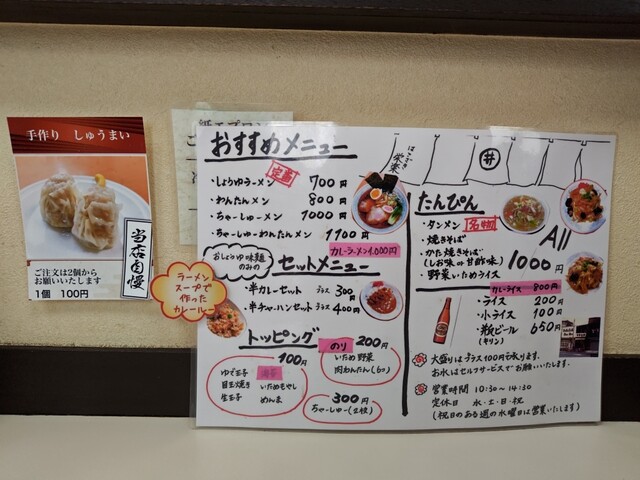 手作り しゅうまい
当店自慢
ご注文は2個から
お願いいたします
1個 100円
おすすめメニュー
定番
・しょうゆラーメン 700円
・わんたんメン 800円
・ちゃーしゅーメン 1000円
・ちゃーしゅーわんたんメン 1100円
カレーラーメン1,000円
おしょうゆ味麺
のみの
セットメニュー
ラーメン
スープで
作った
カレールー
・半カレーセット プラス 300円
・半チャーハンセット プラス 400円
トッピング
100円
ゆで玉子
目玉焼き
いためもやし
生玉子
めんま
のり
200円
いため野菜
肉わんたん(6コ)
300円
ちゃーしゅー(2枚)
井
たんぴん
・タンメン
・焼きそば
・かた焼きそば
(しお味の甘酢味)
・野菜いためライス
All
1000円
カレーライス 800円
・ライス 200円
・小ライス 100円
・瓶ビール 650円
(キリン)
大盛りはプラス100円で承ります。
お水はセルフサービスでお願いいたします。
営業時間 10:30~14:30
定休日 水・土・日・祝
(祝日のある週の水曜日は営業いたします)